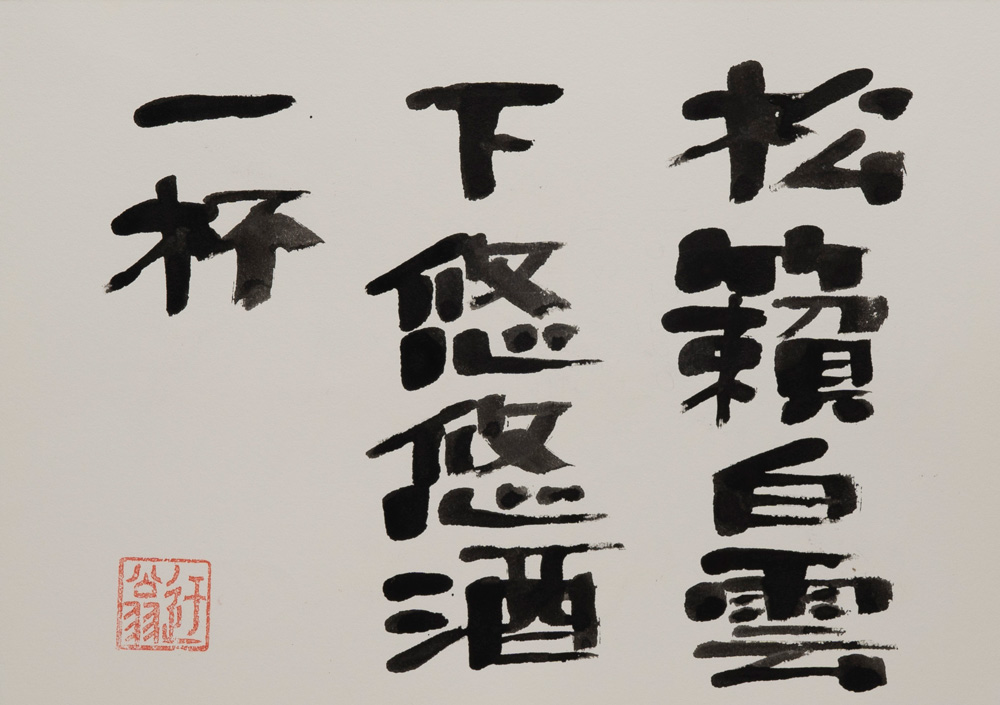 松籟白雲
下悠悠酒
一杯
迂翁